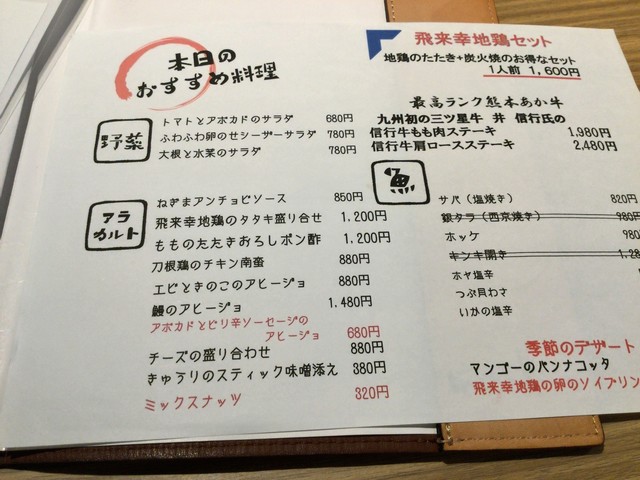 本日の
おすすめ料理
野菜
トマトとアボカドのサラダ 680円
ふわふわ卵のせシーザーサラダ 780円
大根と水菜のサラダ 780円
アラ
カルト
ねぎまアンチョビソース 850円
飛来幸地鶏のタタキ盛り合せ 1,200円
もものたたきおろしポン酢 1,200円
刀根鶏のチキン南蛮 880円
エビときのこのアヒージョ 880円
鰻のアヒージョ 1,480円
アボカドとピリ辛ソーセージの
アヒージョ 680円
チーズの盛り合わせ 880円
きゅうりのスティック味噌添え 380円
ミックスナッツ 320円
飛来幸地鶏セット
地鶏のたたき+炭火焼のお得なセット
1人前 1,600円
最高ランク熊本あか牛
九州初の三ツ星牛 井 信行氏の
信行牛もも肉ステーキ 1,980円
信行牛肩ロースステーキ 2,480円
魚
サバ(塩焼き) 820円
銀タラ(西京焼き) 980円
ホッケ 980
キンキ開き 1,28
ホヤ塩辛
つぶ貝わさ
いかの塩辛
季節のデザート
マンゴーのパンナコッタ
飛来幸地鶏の卵のソイプリン